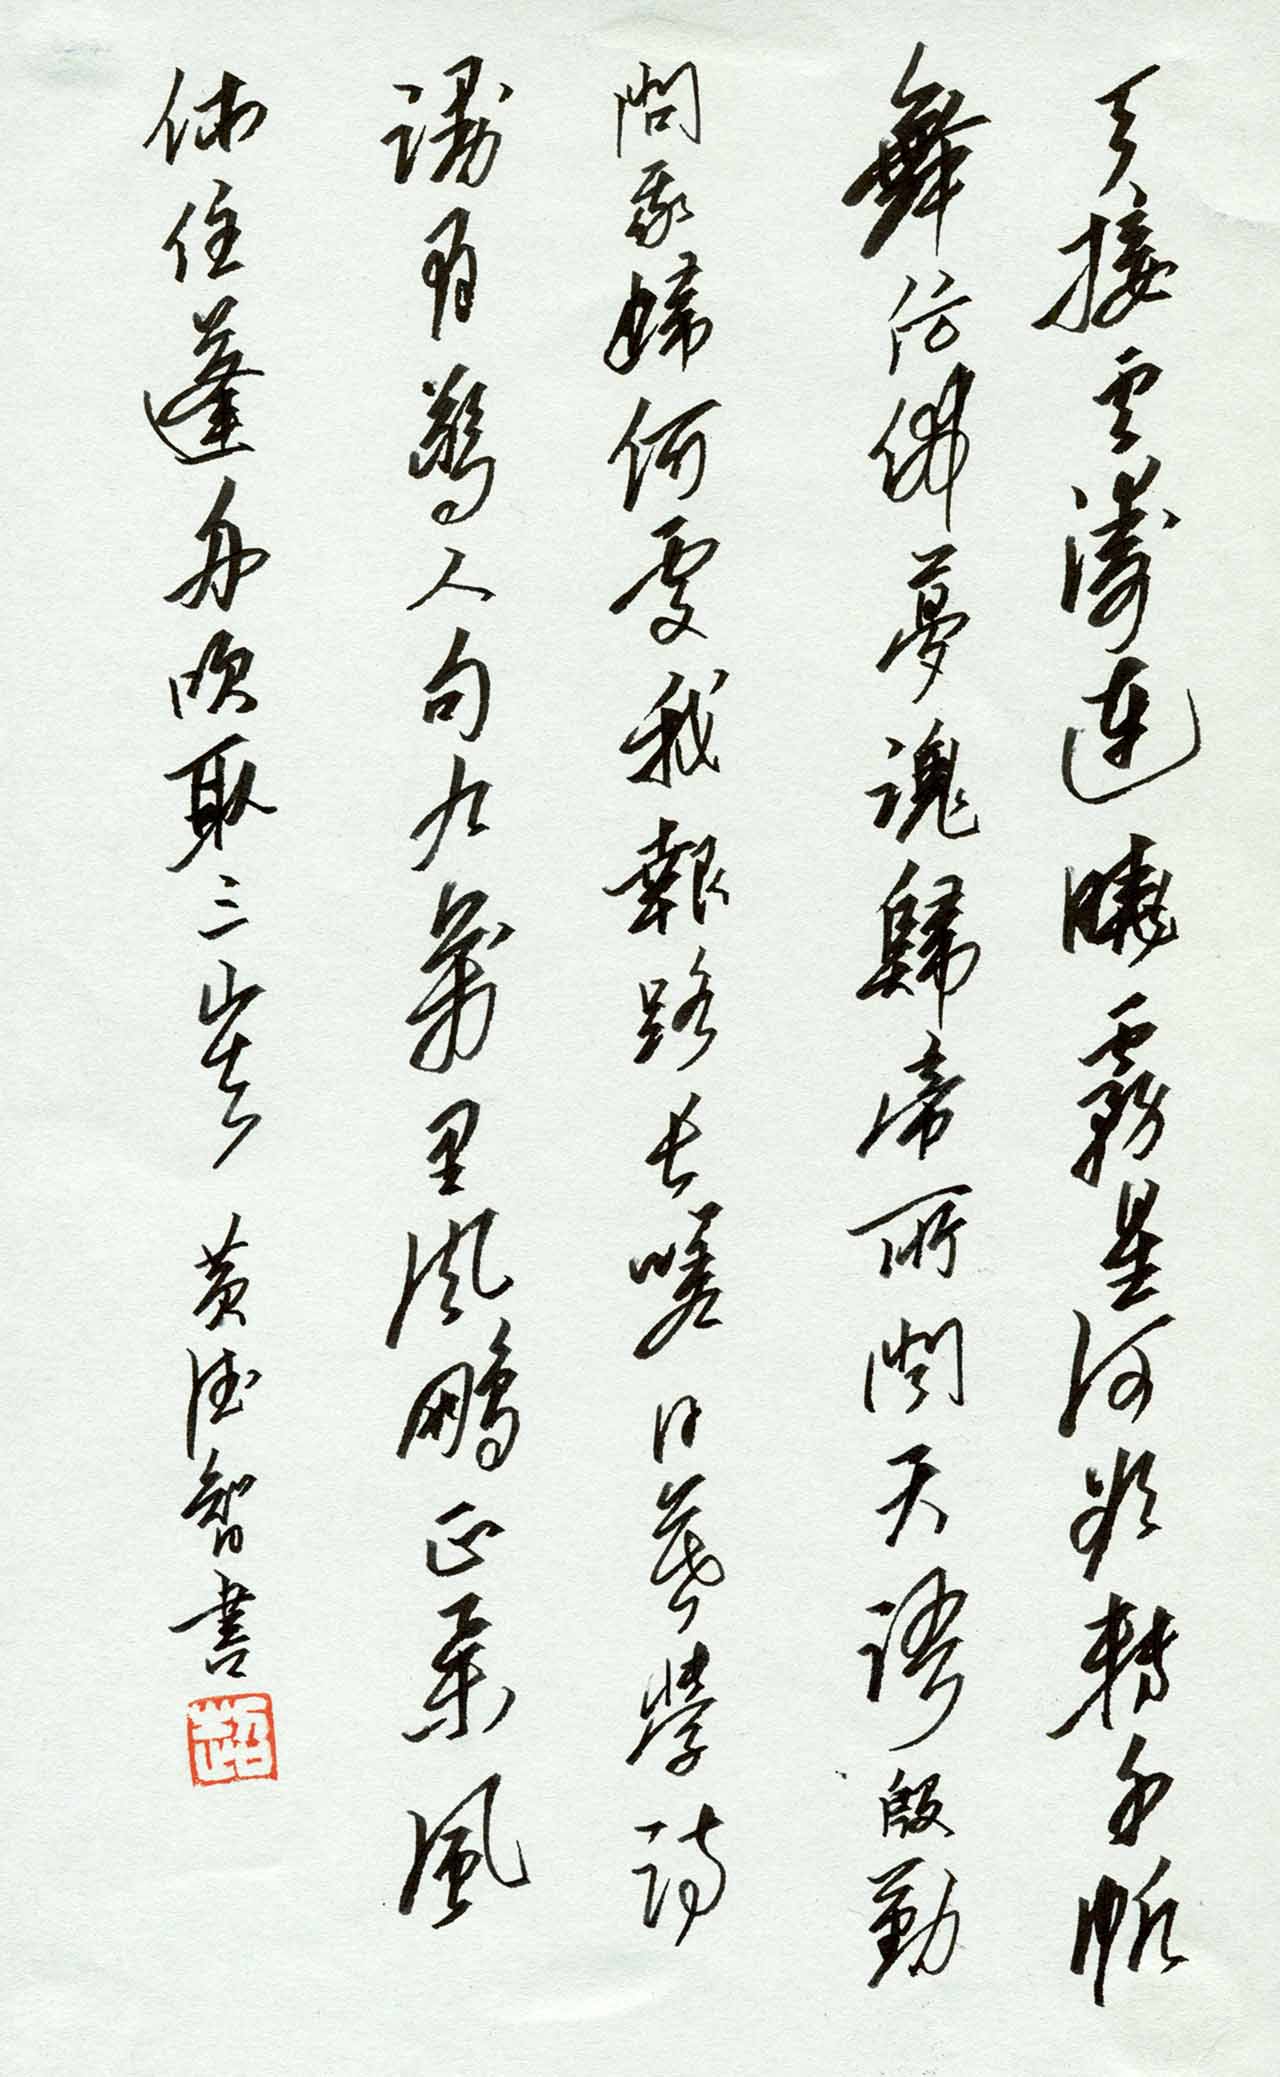 天接雲濤連曉霧星河欲轉千帆
舞仿佛夢魂歸帝所聞天語殷勤
問我歸何處我報路長嗟日暮學詩
謾有驚人句九萬里風鵬正舉風
休住蓬舟吹取三山去 黄德智書